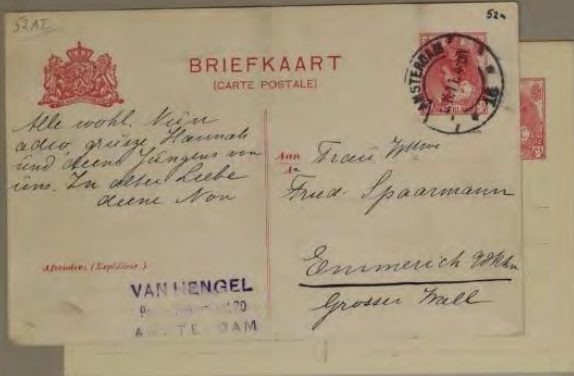 52AI
52a
BRIEFKAART
(CARTE POSTALE)
AMSTERDAM
Alle wohl. Nun
adio, grüsze Hannah
und deine Jungens von
uns. In alter Liebe
deine Non
Aan
A
Frau
Fried. Spaarmann
Emmerich
Grosser Wall
Afzender: (Expéditeur.)
VAN HENGEL
20
AMSTERDAM